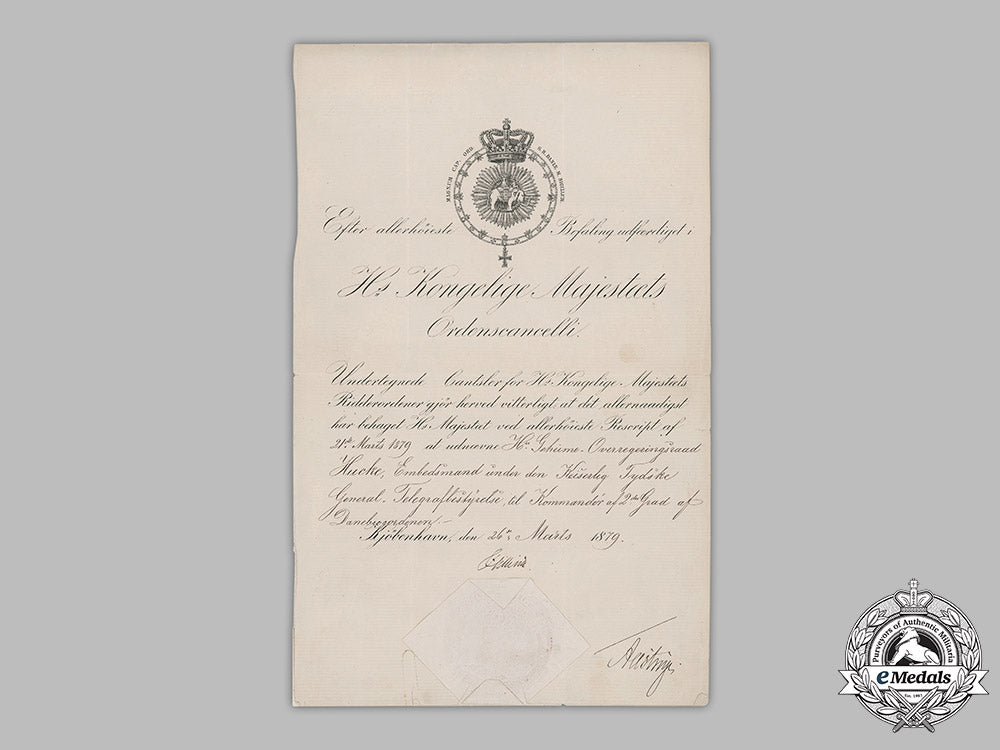 MAGNUM CAP. ORD. S. R. DANIÆ M. SIGILLUM
Efter allerhöieste Befaling udfærdiget i
Hs. Kongelige Majestæts
Ordenscancelli.
Undertegnede Cantsler for Hs. Kongelige Majestæts
Ridderordener gjör herved vitterligt, at det allernaadigst
har behaget Hs. Majestæt ved allerhöieste Rescript af
21de Marts 1879 at udnævne Hr. Geheime-Overregeringsraad
Hucke, Embedsmand under den Keiserlig Tydske
General-Telegrafbestyrelse, til Kommandör af 2den Grad af
Danebrogordenen.—
Kjöbenhavn, den 26de Marts 1879.
Purveyors of Authentic Militaria
eMedals
Est. 1967